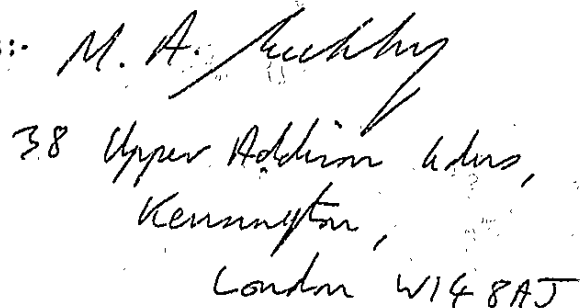 :- M. A.
38 Upper Addison Gdns,
Kensington,
London W14 8AJ